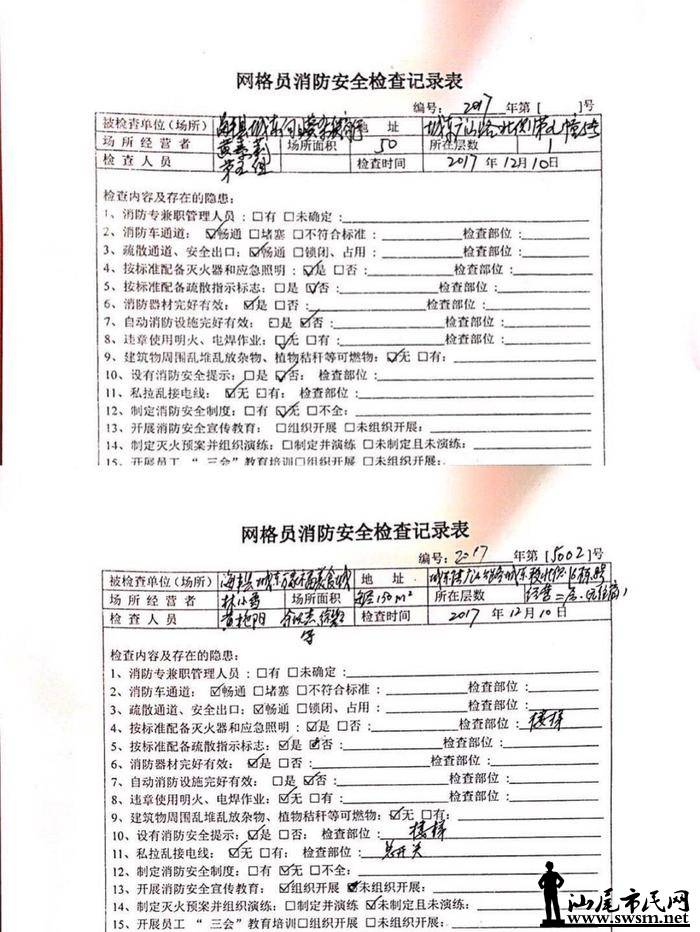 网格员消防安全检查记录表
编号：2017 年第[ ]号
被检查单位（场所） 海丰县城东 地 址 城东
场所经营者 场所面积 50 所在层数 1
检查人员 第五组 检查时间 2017年12月10日
检查内容及存在的隐患：
1、消防专兼职管理人员：□有 □未确定：
2、消防车通道：☑畅通 □堵塞 □不符合标准： 检查部位：
3、疏散通道、安全出口：☑畅通 □锁闭、占用： 检查部位：
4、按标准配备灭火器和应急照明：☑是 □否： 检查部位：
5、按标准配备疏散指示标志：□是 ☑否： 检查部位：
6、消防器材完好有效：☑是 □否： 检查部位：
7、自动消防设施完好有效：□是 ☑否： 检查部位：
8、违章使用明火、电焊作业：☑无 □有： 检查部位：
9、建筑物周围乱堆乱放杂物、植物秸秆等可燃物：☑无 □有：
10、设有消防安全提示：□是 ☑否： 检查部位：
11、私拉乱接电线：☑无 □有： 检查部位：
12、制定消防安全制度：□有 ☑无 □不全：
13、开展消防安全宣传教育：□组织开展 □未组织开展：
14、制定灭火预案并组织演练：□制定并演练 □未制定且未演练：
15、开展员工“三会”教育培训□组织开展 □未组织开展：
网格员消防安全检查记录表
编号：2017 年第[5002]号
被检查单位（场所） 海丰县城东 美食城 地 址 城东
场所经营者 林小 场所面积 150m² 所在层数
检查人员 黄艳阳 检查时间 2017年12月10日
检查内容及存在的隐患：
1、消防专兼职管理人员：□有 □未确定：
2、消防车通道：☑畅通 □堵塞 □不符合标准： 检查部位：
3、疏散通道、安全出口：☑畅通 □锁闭、占用： 检查部位：
4、按标准配备灭火器和应急照明：☑是 □否： 检查部位：楼梯
5、按标准配备疏散指示标志：☑是 ☑否： 检查部位：
6、消防器材完好有效：☑是 □否： 检查部位：
7、自动消防设施完好有效：□是 ☑否： 检查部位：
8、违章使用明火、电焊作业：☑无 □有： 检查部位：
9、建筑物周围乱堆乱放杂物、植物秸秆等可燃物：☑无 □有：
10、设有消防安全提示：☑是 □否： 检查部位：楼梯
11、私拉乱接电线：☑无 □有： 检查部位：总开关
12、制定消防安全制度：□有 ☑无 □不全：
13、开展消防安全宣传教育：☑组织开展 ☑未组织开展：
14、制定灭火预案并组织演练：□制定并演练 ☑未制定且未演练：
15、开展员工“三会”教育培训□组织开展 ☑未组织开展：
汕尾市民网
www.swsm.net